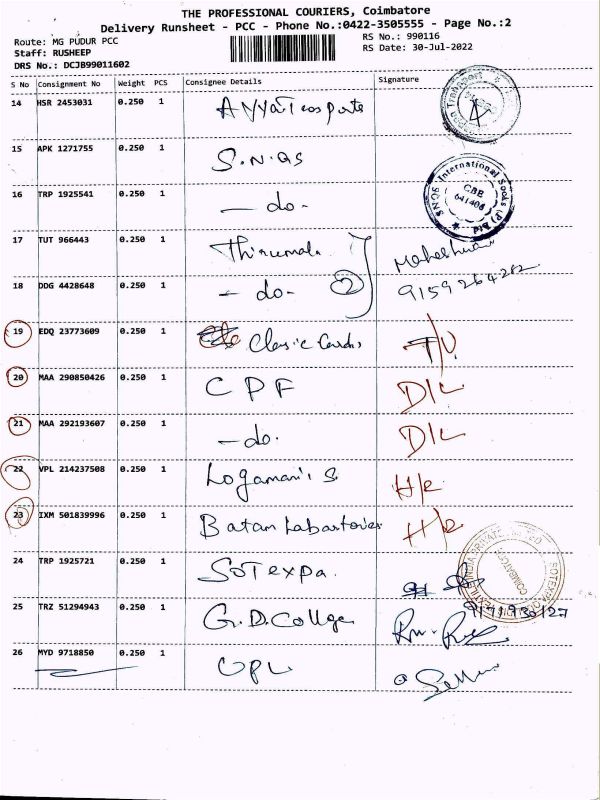 THE PROFESSIONAL COURIERS, Coimbatore
Delivery Runsheet - PCC - Phone No.:0422-3505555 - Page No.:2
Route: MG PUDUR PCC
RS No.: 990116
Staff: RUSHEEP
RS Date: 30-Jul-2022
DRS No.: DCJB99011602
S No Consignment No Weight PCS Consignee Details Signature
14 HSR 2453031 0.250 1
15 APK 1271755 0.250 1 S.N.QS
SNQS International Socks (P) Ltd
CBE
641406
16 TRP 1925541 0.250 1 - do -
17 TUT 966443 0.250 1 Thirumala
18 DDG 4428648 0.250 1 - do - 2
19 EDQ 23773609 0.250 1 Clasic Cards
20 MAA 290850426 0.250 1 C P F D/L
21 MAA 292193607 0.250 1 - do. D/L
22 VPL 214237508 0.250 1 Logamani S
23 IXM 501839996 0.250 1 Batan
24 TRP 1925721 0.250 1 SOTEXPA.
COIMBATORE
25 TRZ 51294943 0.250 1 G.D. College
26 MYD 9718850 0.250 1 UPL